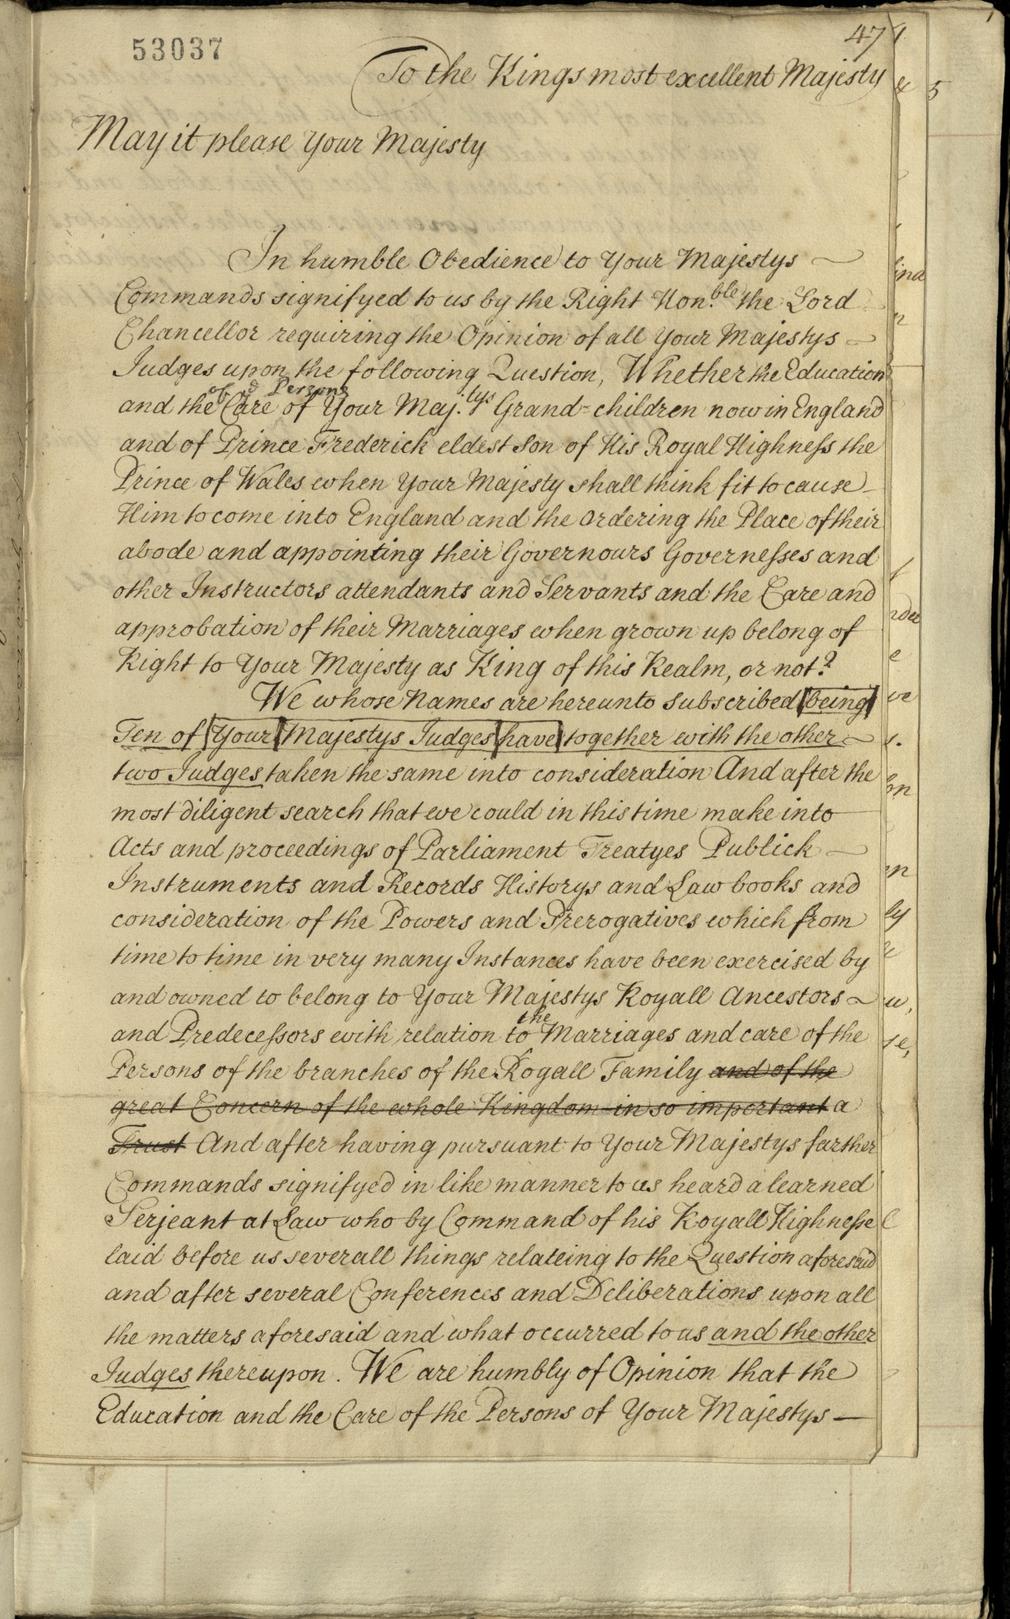 53037
47
To the Kings most excellent Majesty
May it please Your Majesty
In humble Obedience to Your Majestys
Commands signifyed to us by the Right Hon.ble the Lord
Chancellor requiring the Opinion of all Your Majestys
Judges upon the following Question, Whether the Education
of ye Persons
and the Care of Your Maj:tys Grand=children now in England
and of Prince Frederick eldest Son of His Royal Highness the
Prince of Wales when Your Majesty shall think fit to cause
Him to come into England and the Ordering the Place of their
abode and appointing their Governours Governesses and
other Instructors attendants and Servants and the Care and
approbation of their Marriages when grown up belong of
Right to Your Majesty as King of this Realm, or not?
We whose Names are hereunto subscribed being
Ten of Your Majestys Judges have together with the other
two Judges taken the same into consideration And after the
most diligent search that we could in this time make into
Acts and proceedings of Parliament Treatyes Publick
Instruments and Records Historys and Law books and
consideration of the Powers and Prerogatives which from
time to time in very many Instances have been exercised by
and owned to belong to Your Majestys Royall Ancestors
the
and Predecessors with relation to Marriages and care of the
Persons of the branches of the Royall Family and of the
great Concern of the whole Kingdom in so important a
Trust And after having pursuant to Your Majestys farther
Commands signifyed in like manner to us heard a learned
Serjeant at Law who by Command of his Royall Highnesse
laid before us severall things relateing to the Question aforesaid
and after several Conferences and Deliberations upon all
the matters aforesaid and what occurred to us and the other
Judges thereupon. We are humbly of Opinion that the
Education and the Care of the Persons of Your Majestys